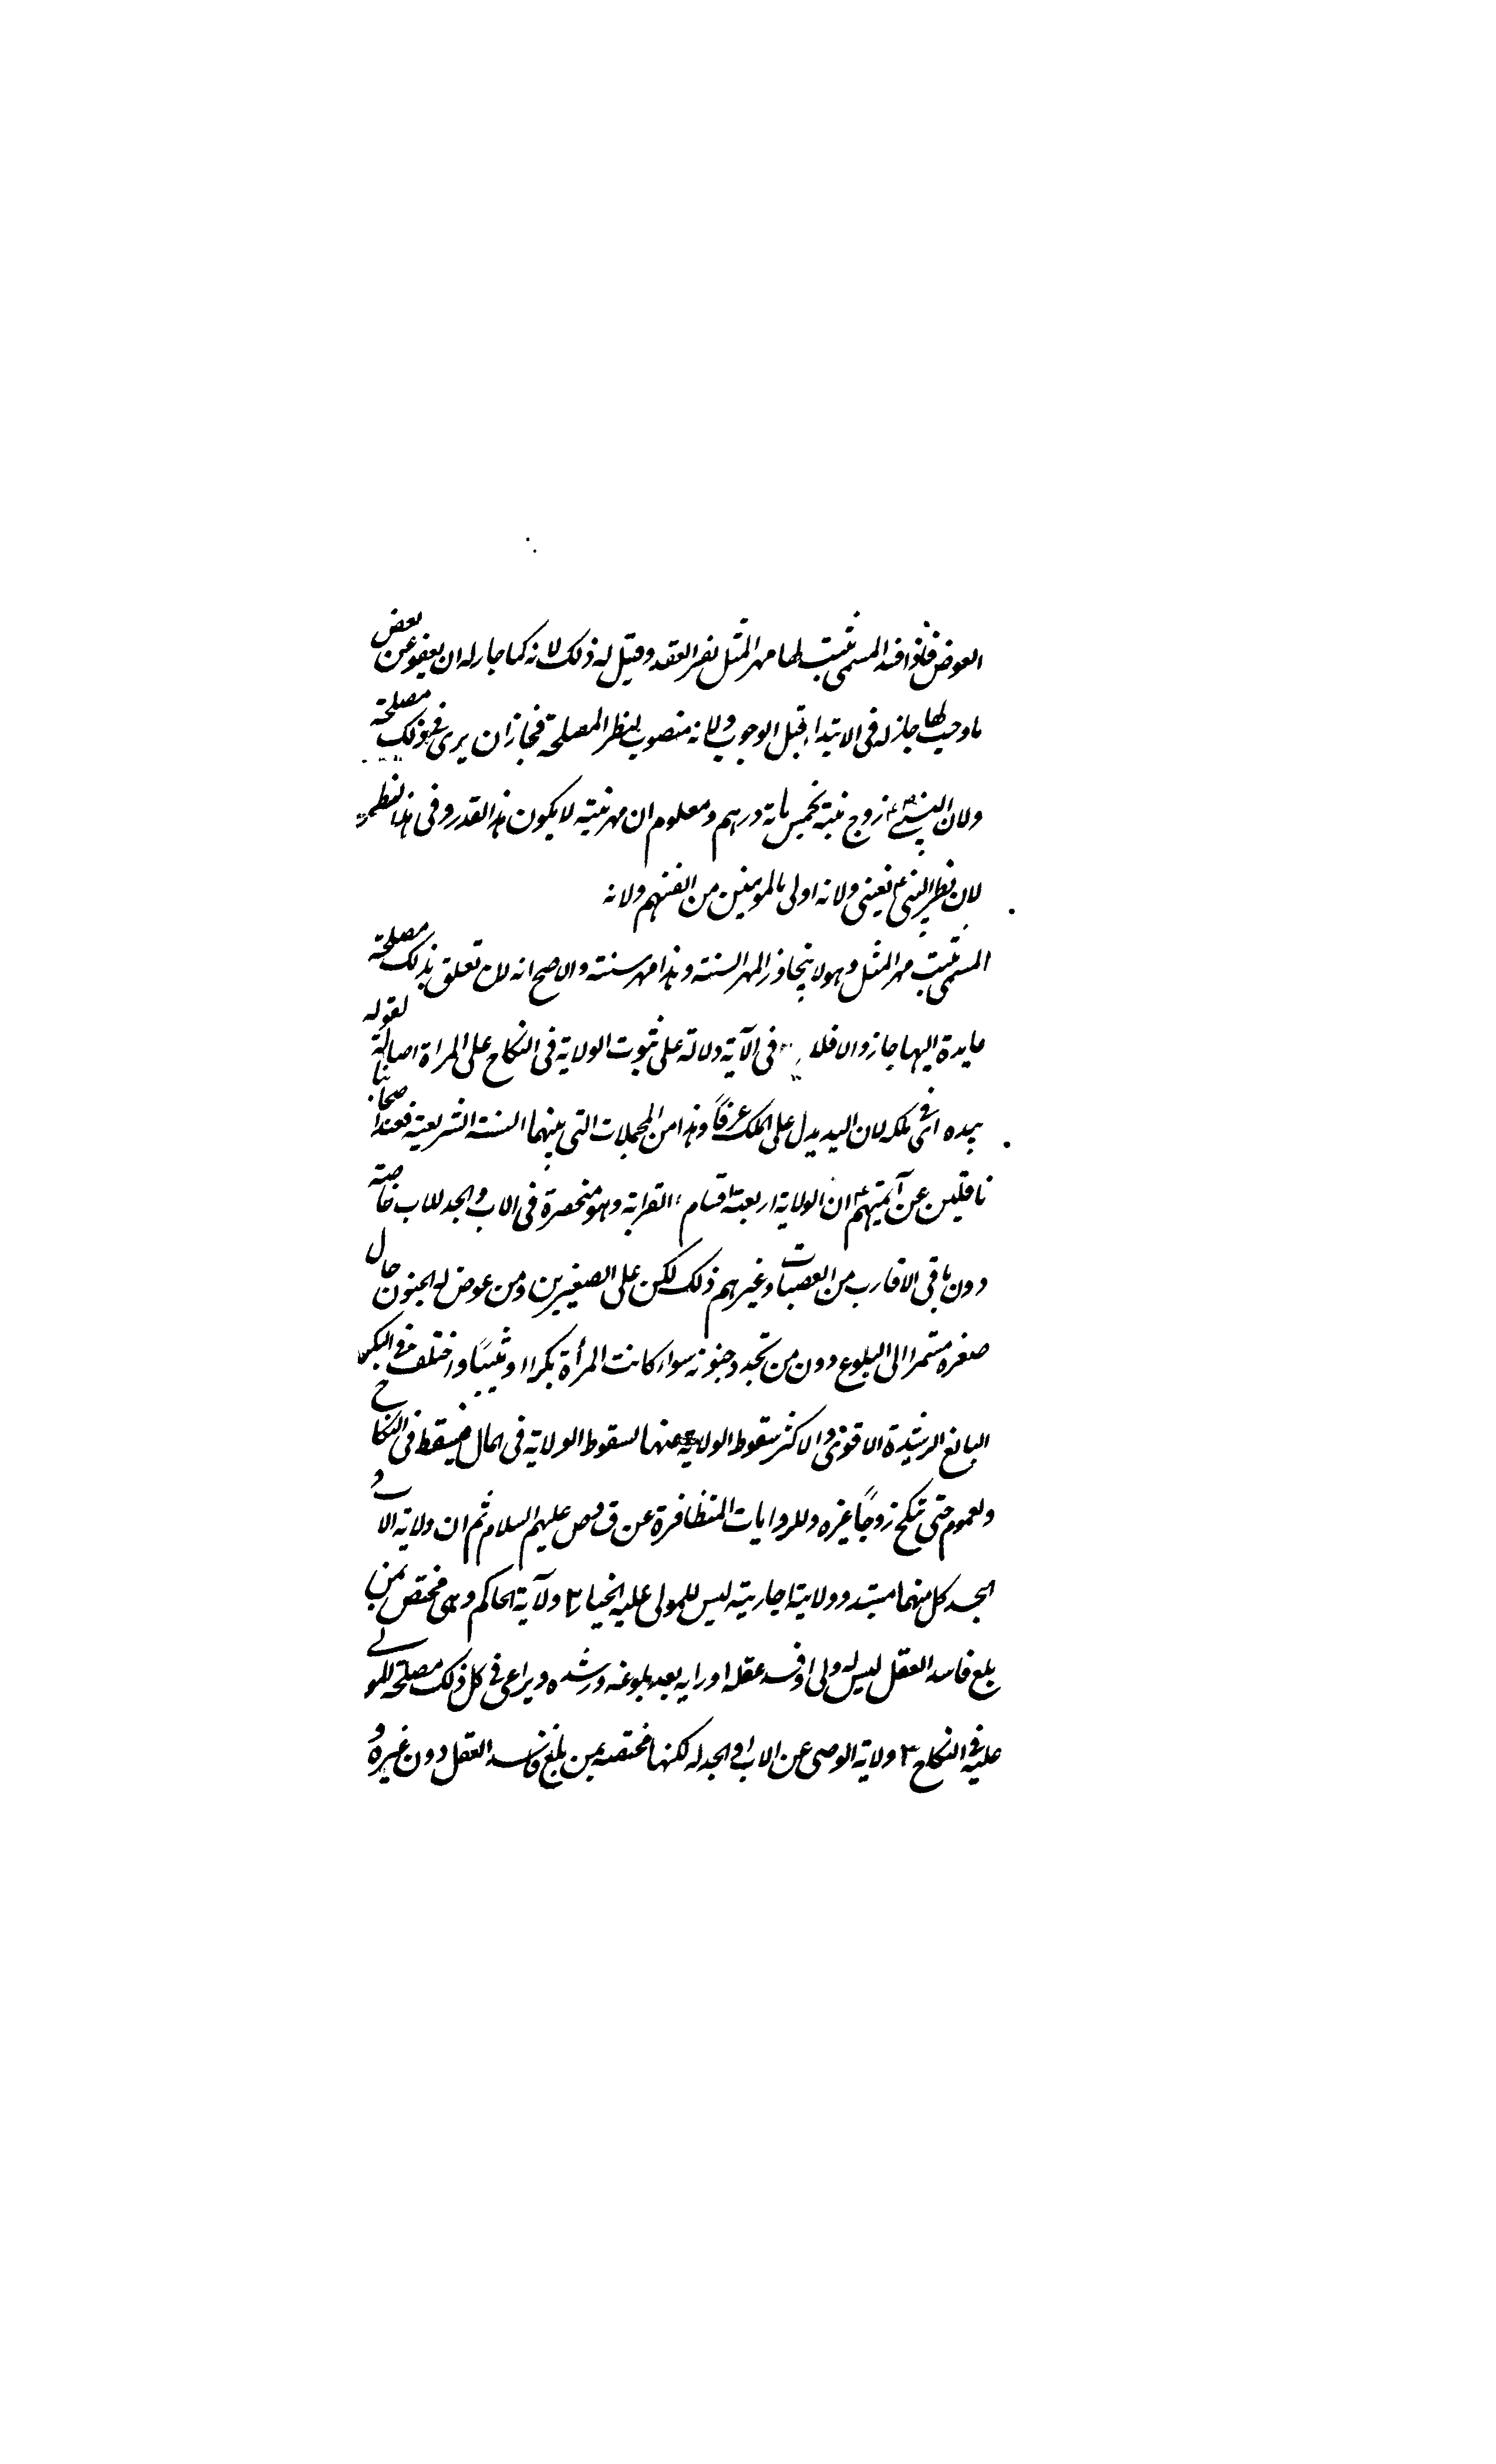 العوض فاذا فسد المسمى يثبت لها مهر المثل بنفس العقد وقيل له ذلك لانه كما جاز له ان يعفو عن بعض
ما وجب لها جاز له فى الابتداء قبل الوجوب ولانه منصوب لنظر المصلحة فجاز ان يرى فى ذلك مصلحة
ولان النبى ص ع زوج بنته بخمس ماية درهم ومعلوم ان مهر بنته لا يكون هذا القدر وفى هذا نظر
لان نظر النبى ع يعنى ولانه اولى بالمومنين من انفسهم ولانه
المسمى يثبت مهر المثل وهو لا يتجاوز المهر السنة وهذا مهر سنته والاصح انه لان تعلق بذلك مصلحة
عايدة اليها جاز والا فلا فى الآية دلالة على ثبوت الولاية فى النكاح على المراة اصالة لقوله
بيده اى فى ملكه لان اليد يدل على الملك عرفاً وهذا من المجملات التى بينها السنة الشريعة فعند اصحابنا
ناقلين عن آئمتهم ع ان الولاية اربعة اقسام ١ القرابة وهو منحصرة فى الاب والجد للاب خاصة
دون باقى الاقارب من العصبات وغيرهم ذلك لكن على الصغيرين ومن عوض له الجنون حال
صغره مستمرا الى البلوغ دون من تجدد جنونه سواء كانت المرأة بكرا او ثيباً واختلف فى البكر
البالغ الرشيدة الاقوى والاكثر سقوط الولاية عنها لسقوط الولاية فى المال فيسقط فى النكاح
ولعموم حتى تنكح زوجاً غيره وللروايات المتظافرة عن ق وص عليهم السلام ثم ان ولاية الاب و
الجد كل منهما مستبد وولايتة اجاريته ليس للمولى عليه الخيار ٢ ولآية الحاكم وهى مختص بمن
بلغ فاسد العقل ليس له ولى او فسد عقله او رايه بعد بلوغه ورشده ويراعى فى كل ذلك مصلحة للمولى
عليه فى النكاح ٣ ولاية الوصى عن الاب او الجد له لكنها مختصه بمن بلغ فاسد العقل دون غيره و